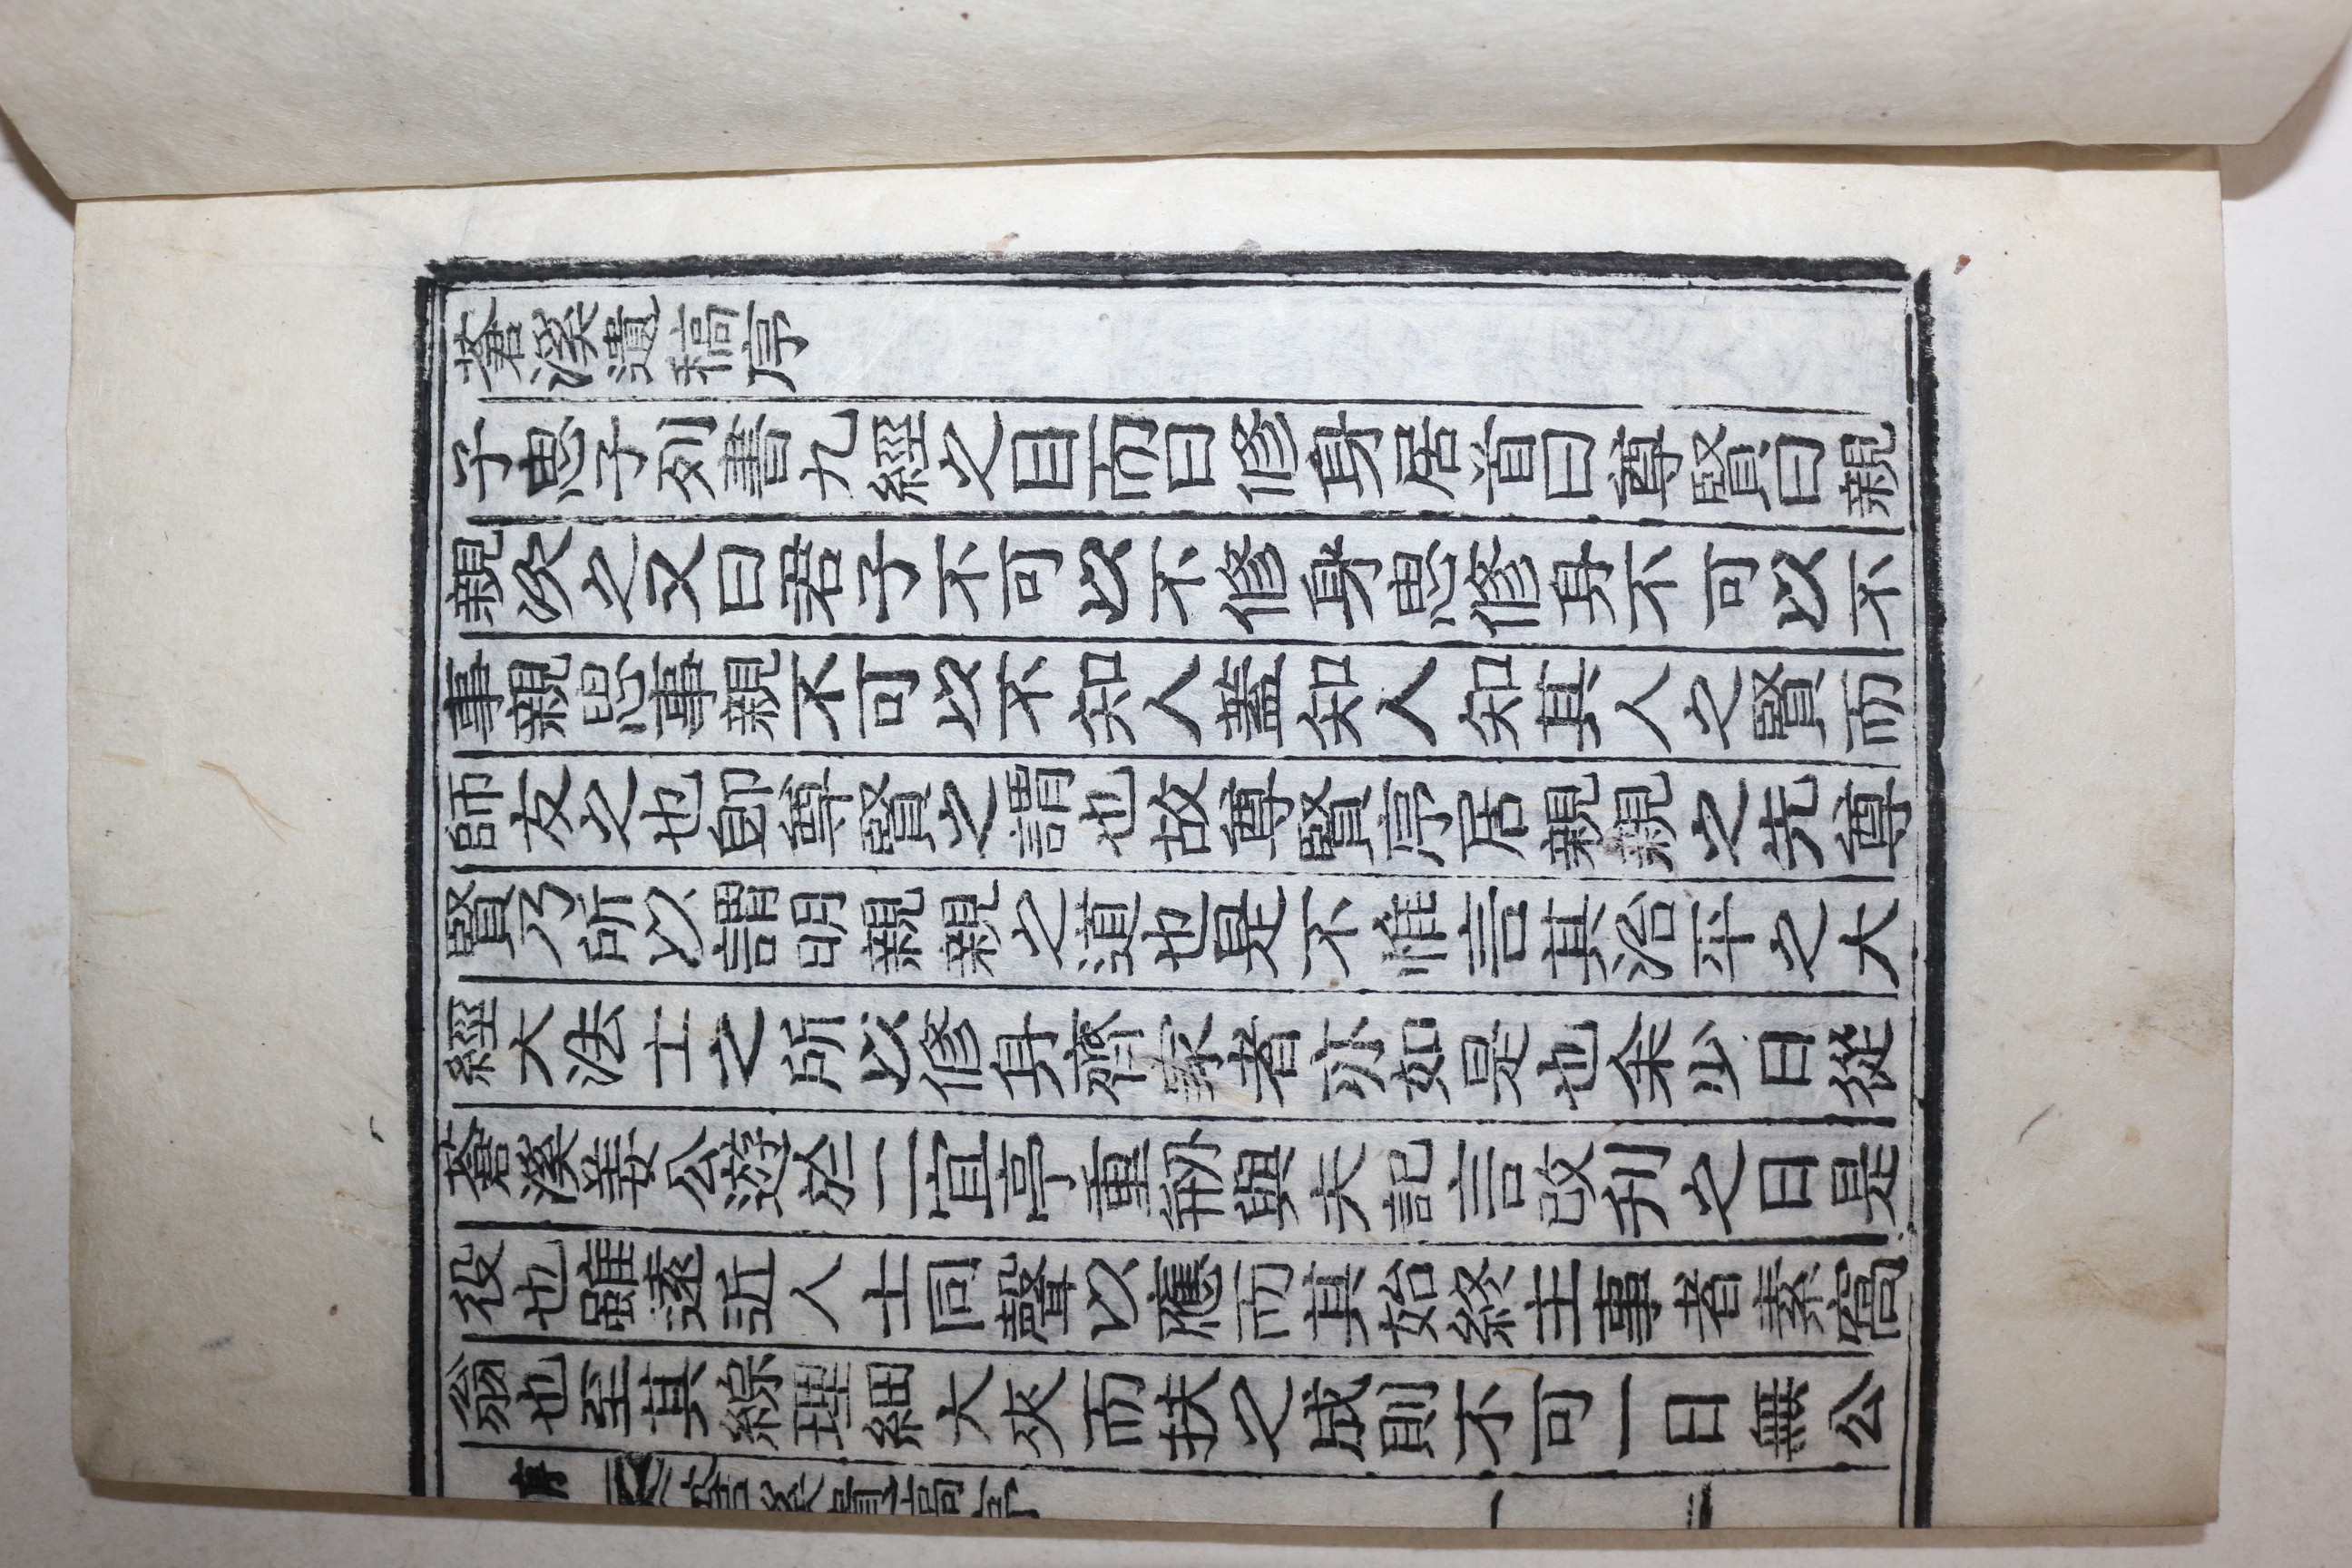 蒼溪遺稿序
子思子列書九經之目而曰修身居首曰尊賢曰親
親次之又曰君子不可以不修身思修身不可以不
事親思事親不可以不知人蓋知人知其人之賢而
師友之也卽尊賢之謂也故尊賢序居親親之先尊
賢乃所以謂明親親之道也是不惟言其治平之大
經大法士之所以修身齊家者亦如是也余少日從
蒼溪姜公遊於二宜亭重刱與夫記言改刊之日是
役也雖遠近人士同聲以應而其始終主事者素窩
翁也至其綜理細大夾而扶之成則不可一日無公
蒼溪遺稿序 一